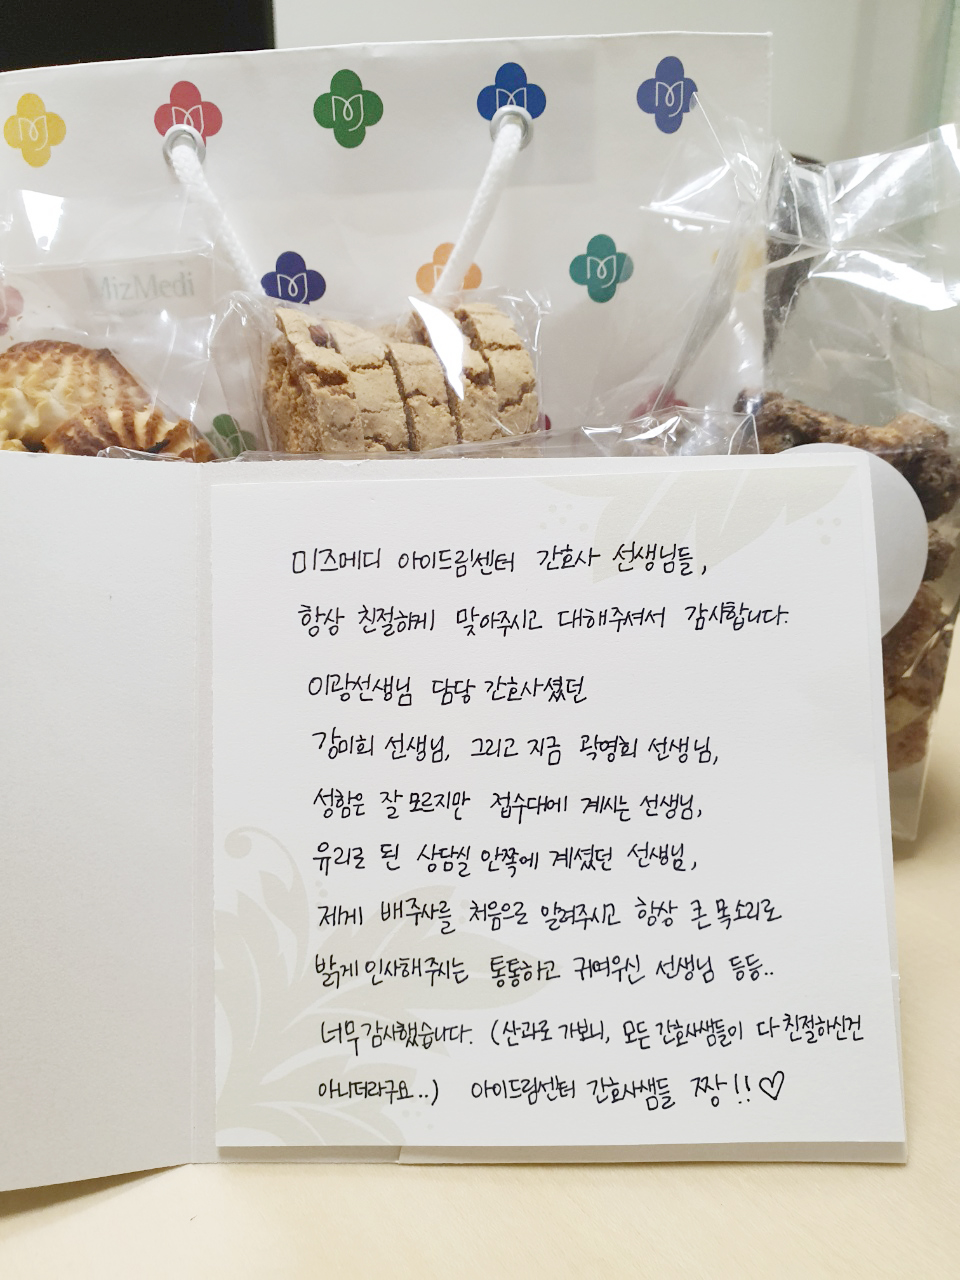 MizMedi
미즈메디 아이드림센터 간호사 선생님들,
항상 친절하게 맞아주시고 대해주셔서 감사합니다.
이광선생님 담당 간호사셨던
강미희 선생님, 그리고 지금 곽영희 선생님,
성함은 잘 모르지만 접수대에 계시는 선생님,
유리로 된 상담실 안쪽에 계셨던 선생님,
제게 배주사를 처음으로 알려주시고 항상 큰 목소리로
밝게 인사해주시는 통통하고 귀여우신 선생님 등등..
너무 감사했습니다. (산과로 가보니, 모든 간호사쌤들이 다 친절하신건
아니더라구요..) 아이드림센터 간호사쌤들 짱!!♡